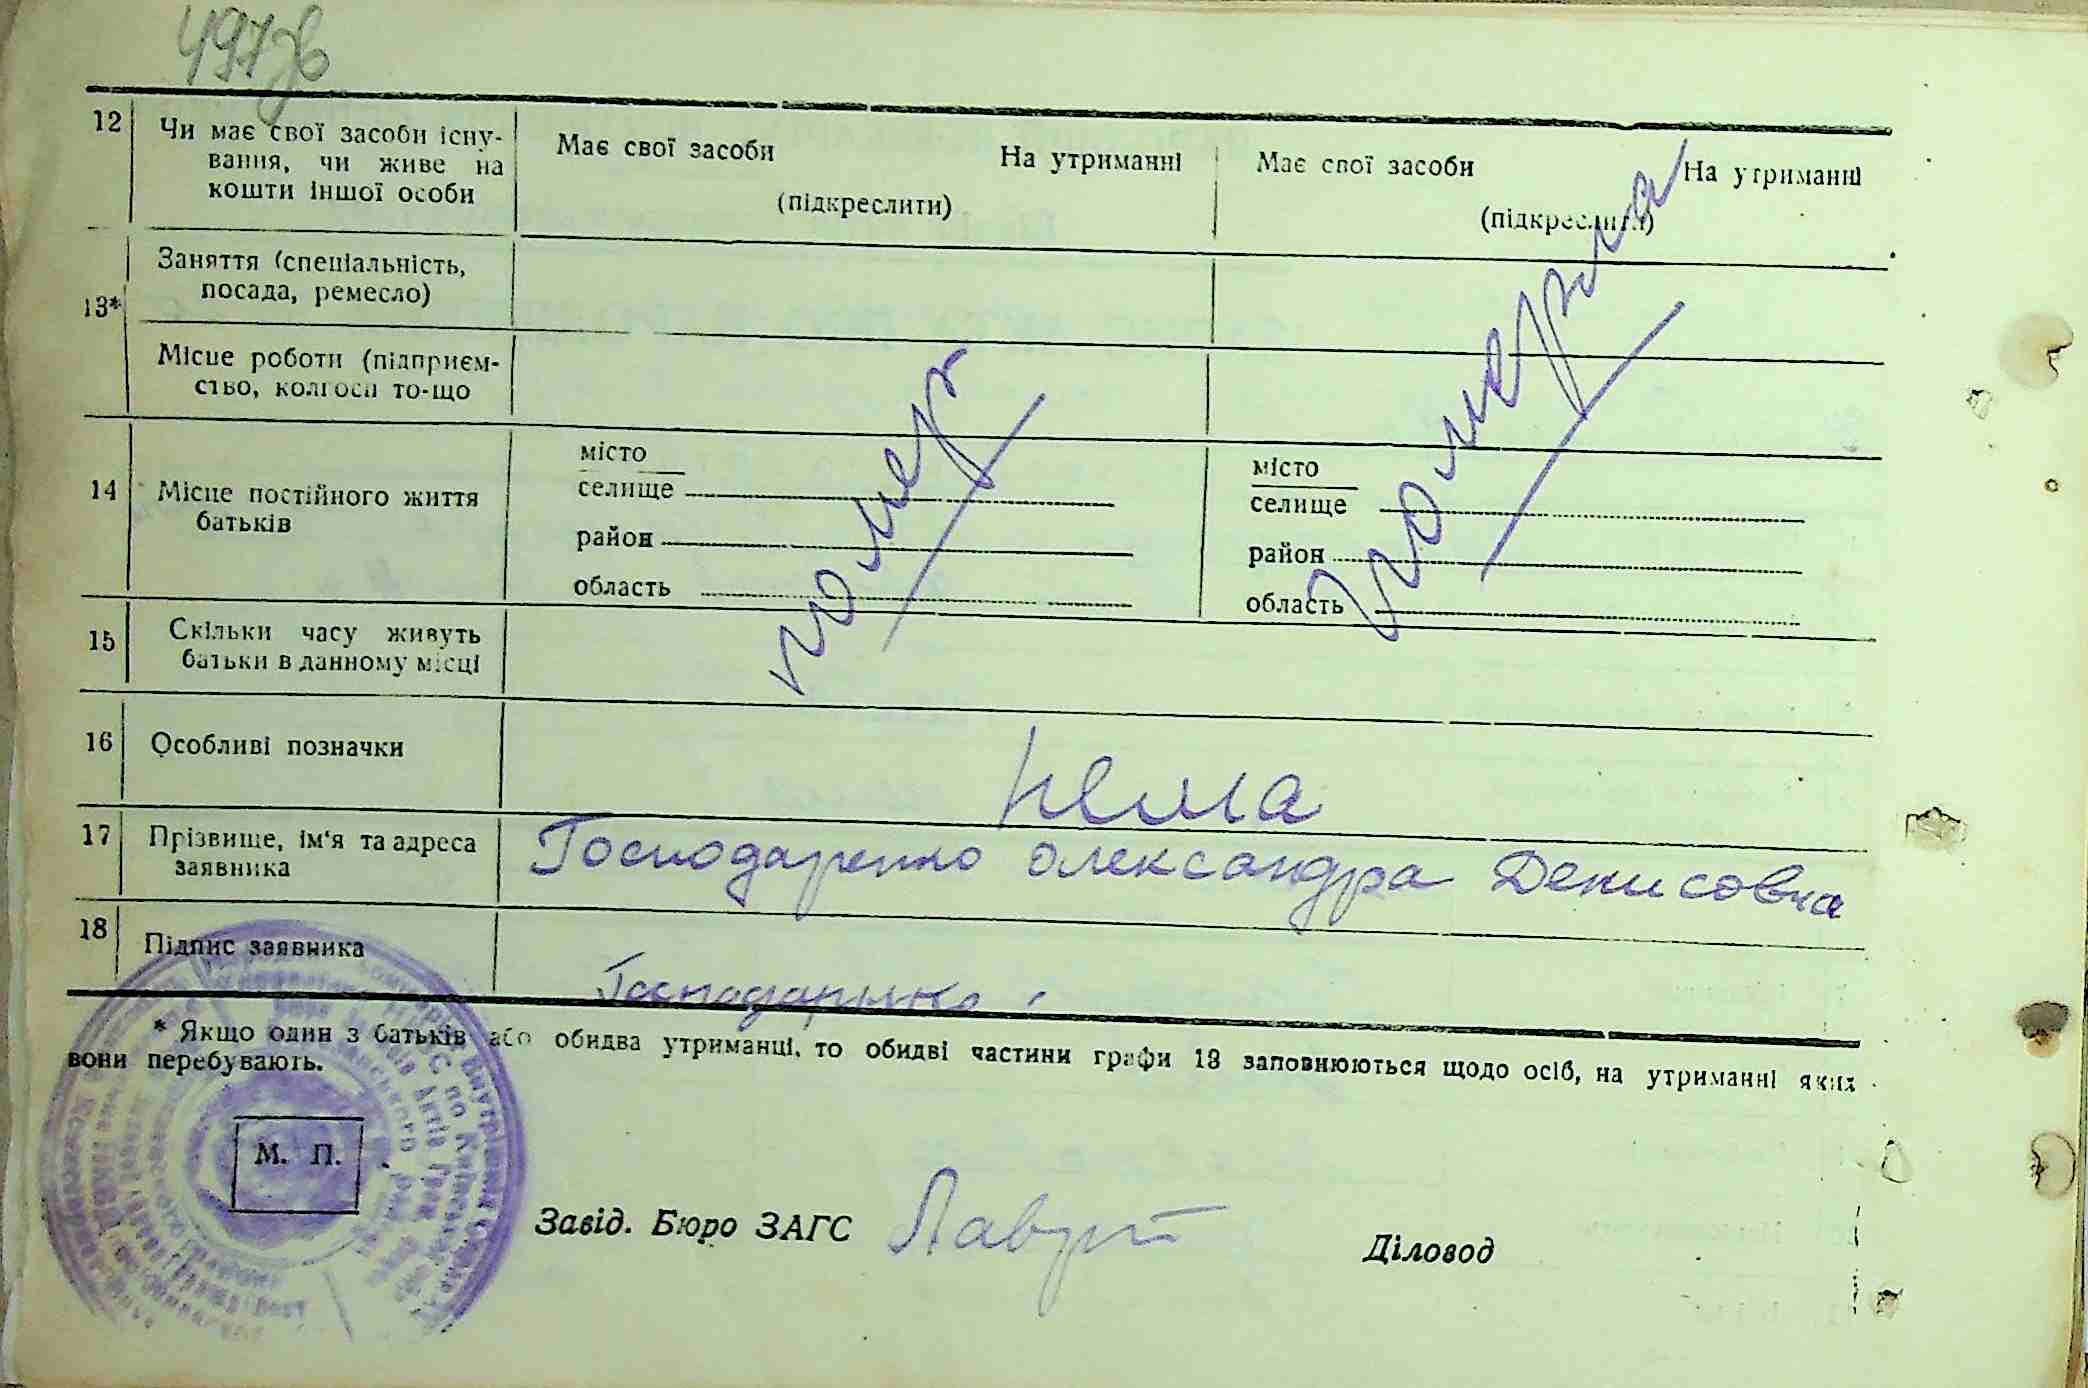 497зв
12 Чи має свої засоби існу- Має свої засоби На утриманні Має свої засоби На утриманні
вання, чи живе на
кошти іншої особи (підкреслити) (підкреслити)
Заняття (спеціальність,
посада, ремесло)
13*
Місце роботи (підприєм-
ство, колгосп то-що
помер
померла
14 Місце постійного життя
батьків
місто місто
селище селище
район район
область область
15 Скільки часу живуть
батьки в данному місці
16 Особливі позначки нема
17 Прізвище, ім'я та адреса Господаренко Олександра Денисовна
заявника
18 Підпис заявника Господаренко
* Якщо один з батьків або обидва утриманці, то обидві частини графи 13 заповнюються щодо осіб, на утриманні яких
вони перебувають.
М. П.
Завід. Бюро ЗАГС Діловод